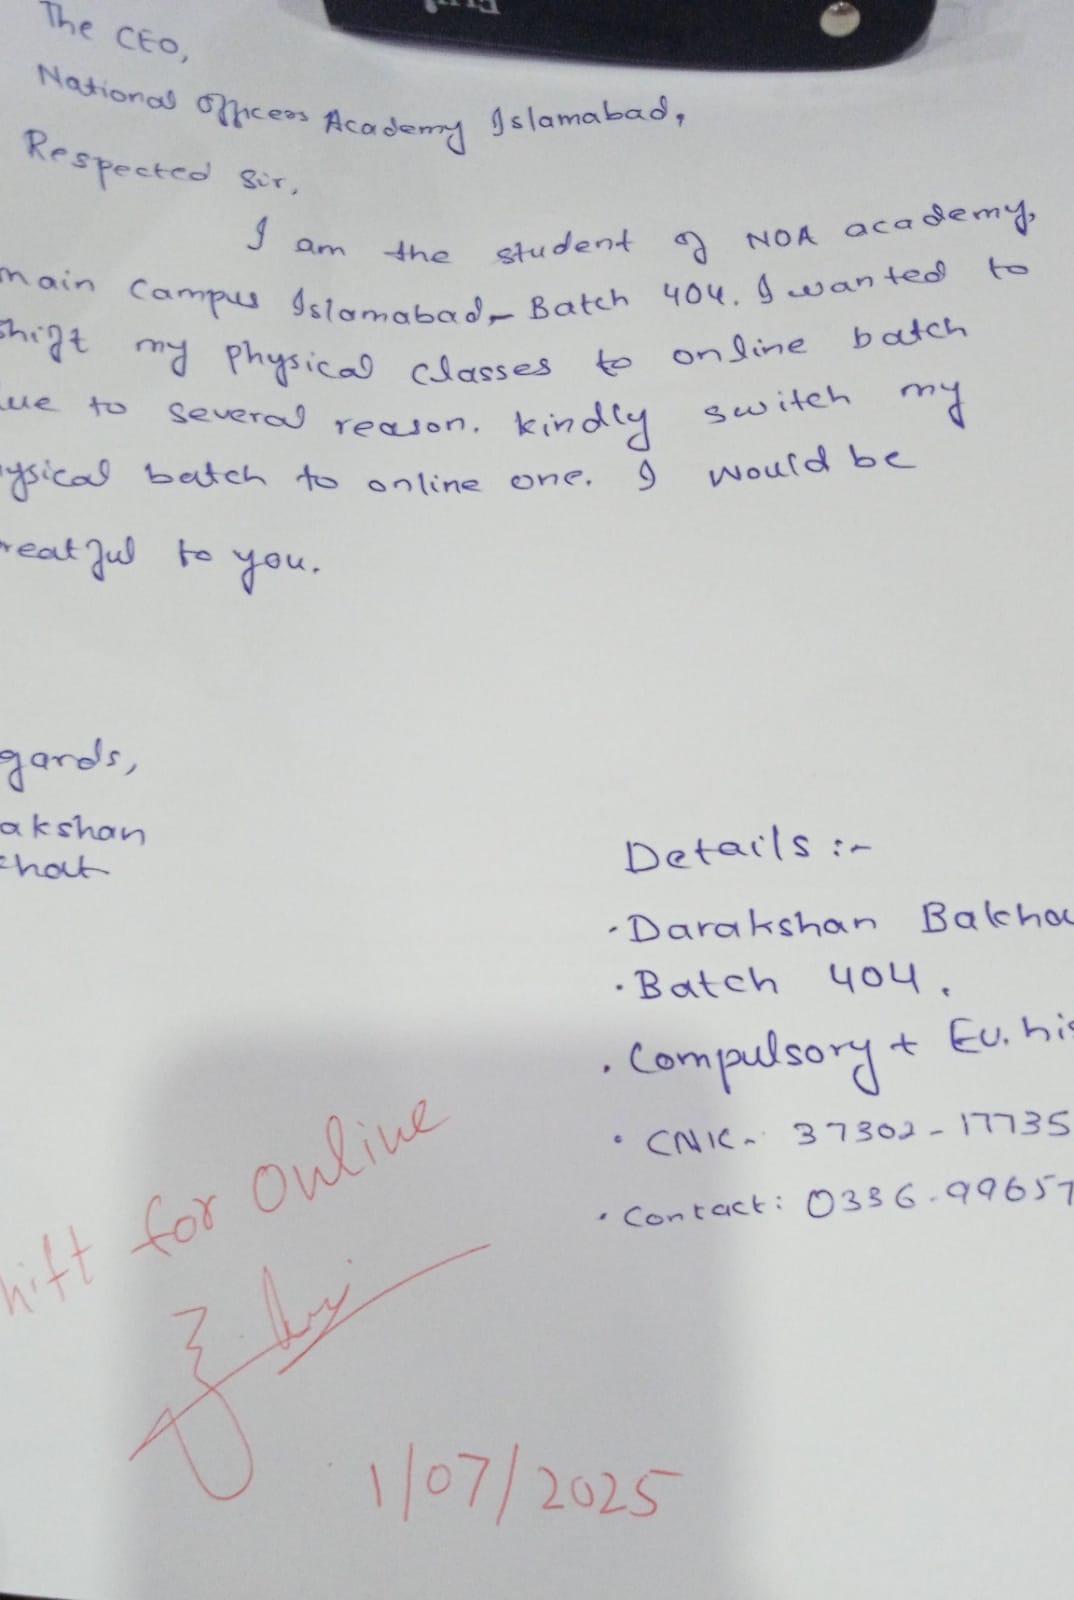 The CEO,
National Officers Academy Islamabad,
Respected Sir,
I am the student of NOA academy,
main Campus Islamabad- Batch 404. I wanted to
shift my physical classes to online batch
ue to several reason. kindly switch my
ysical batch to online one. I would be
reatful to you.
gards,
akshan
chat
Details :-
· Darakshan Bakha
· Batch 404.
· Compulsory + Eu. his
· CNIC - 37302-17735
· Contact: 0336-99657
hift for online
1/07/2025